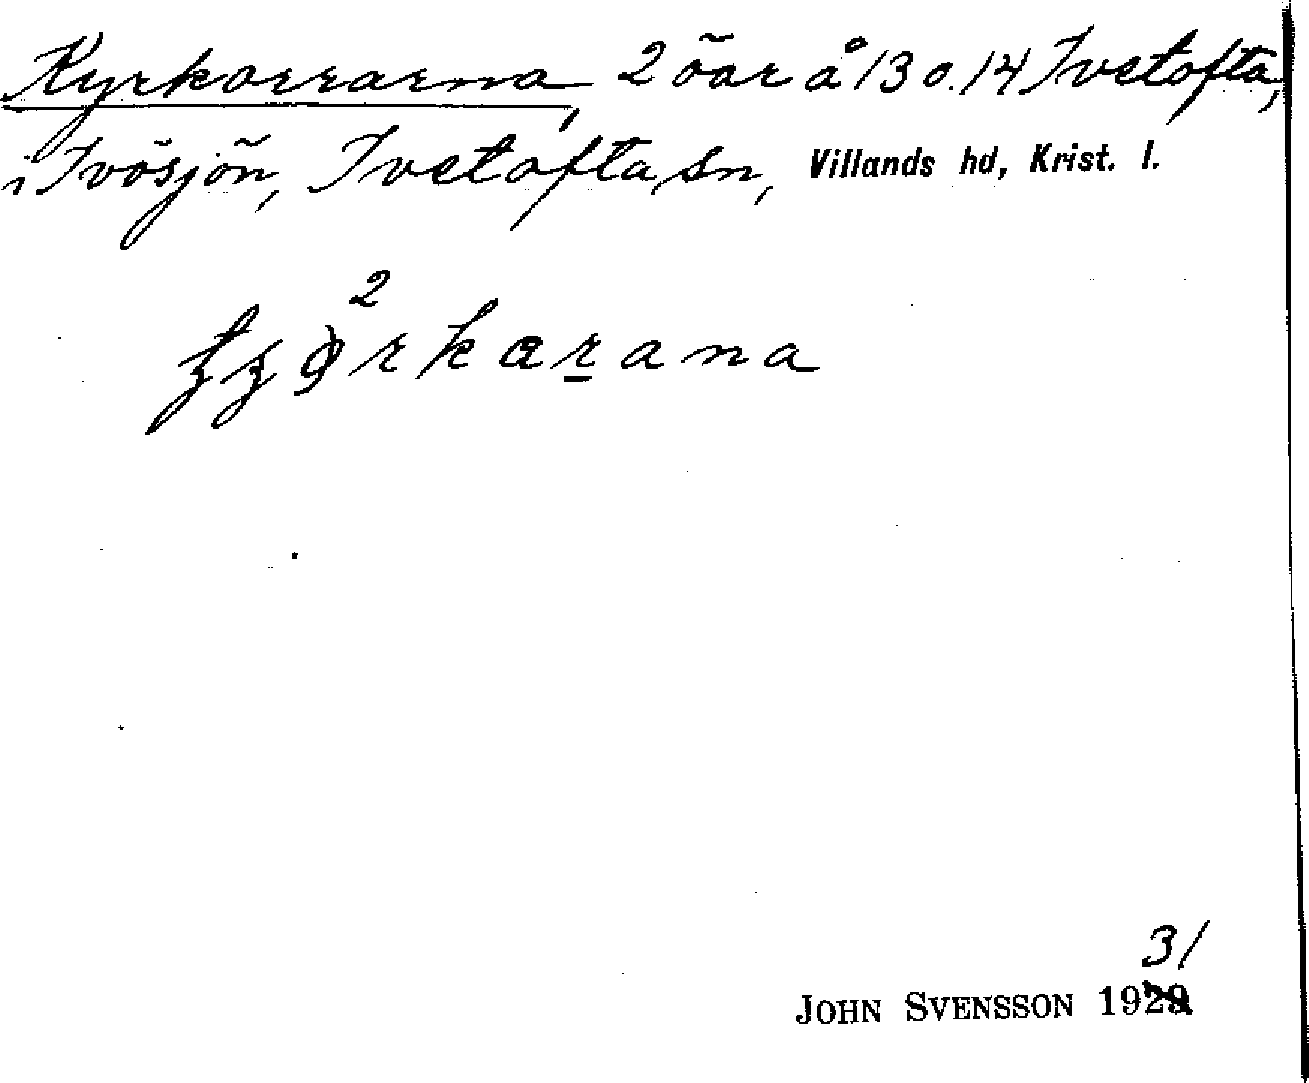 Kyrkorrarna, 2 öar å 13 o. 14 Ivetofta,
i Ivösjön, Ivetofta sn, Villands hd, Krist. l.
2
31
JOHN SVENSSON 1929